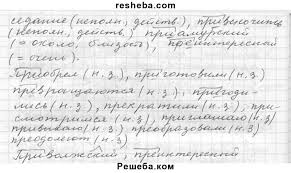 resheba.com
седание (неполн. действ.), привскочить
(неполн. действ.) приамурский
(= около, близости), преинтересной
(= очень).
Приобрел (н.з.), приготовили (н.з.)
превращаются (н.з), пригоди-
лись (н.з.), прекратили (н.з), при-
смотримся (н.з), приглашаю (н.з)
прививаю (н.з), преобразовали (н.з)
преодолеют (н.з)
Приволжский, преинтересной
Решеба.ком